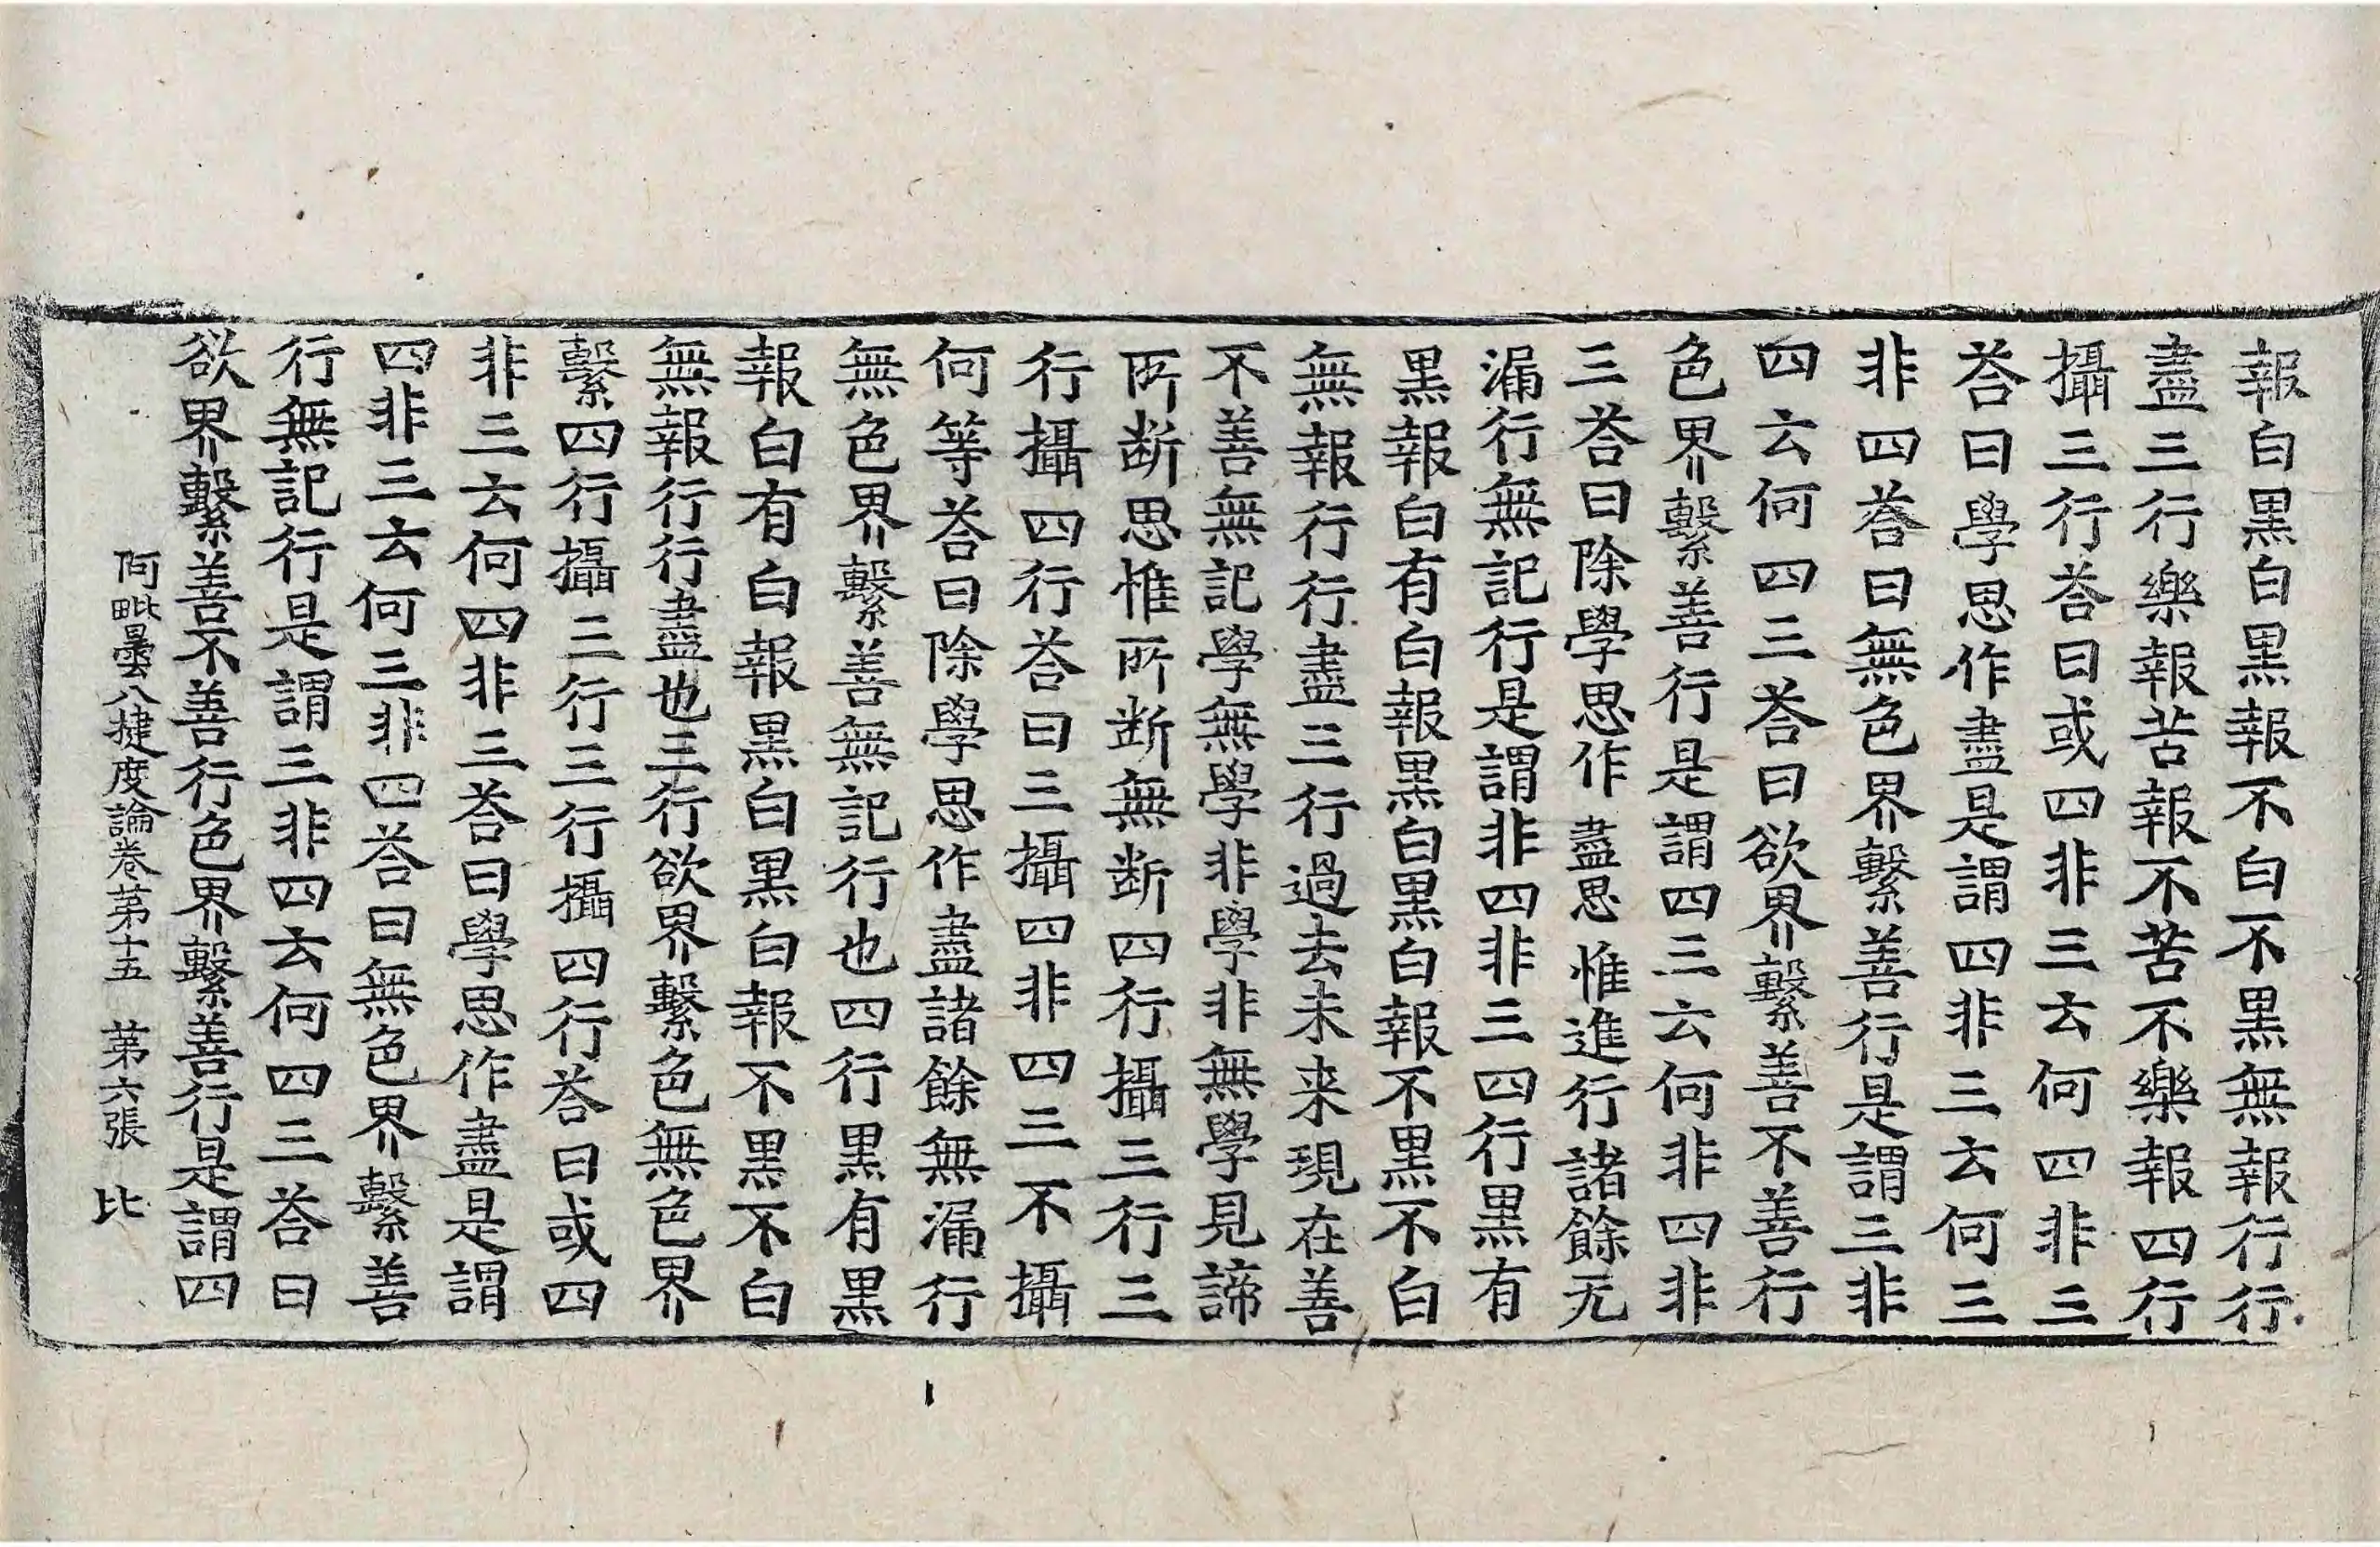 報白黒白黒報不白不黒無報行行
盡三行樂報苦報不苦不樂報四行
攝三行荅曰或四非三云何四非三
荅曰學思作盡是謂四非三云何三
非四荅曰無色界繫善行是謂三非
四云何四三荅曰欲界繫善不善行
色界繫善行是謂四三云何非四非
三荅曰除學思作盡思惟進行諸餘无
漏行無記行是謂非四非三四行黒有
黒報白有白報黒白黒白報不黒不白
無報行行盡三行過去未来現在善
不善無記學無學非學非無學見諦
所断思惟所断無断四行攝三行三
行攝四行荅曰三攝四非四三不攝
何等荅曰除學思作盡諸餘無漏行
無色界繫善無記行也四行黒有黒
報白有白報黒白黒白報不黒不白
無報行行盡也三行欲界繫色無色界
繫四行攝三行三行攝四行荅曰或四
非三云何四非三荅曰學思作盡是謂
四非三云何三非四荅曰無色界繫善
行無記行是謂三非四云何四三荅曰
欲界繫善不善行色界繫善行是謂四
阿毗曇八揵度論卷苐十五　苐六張　比